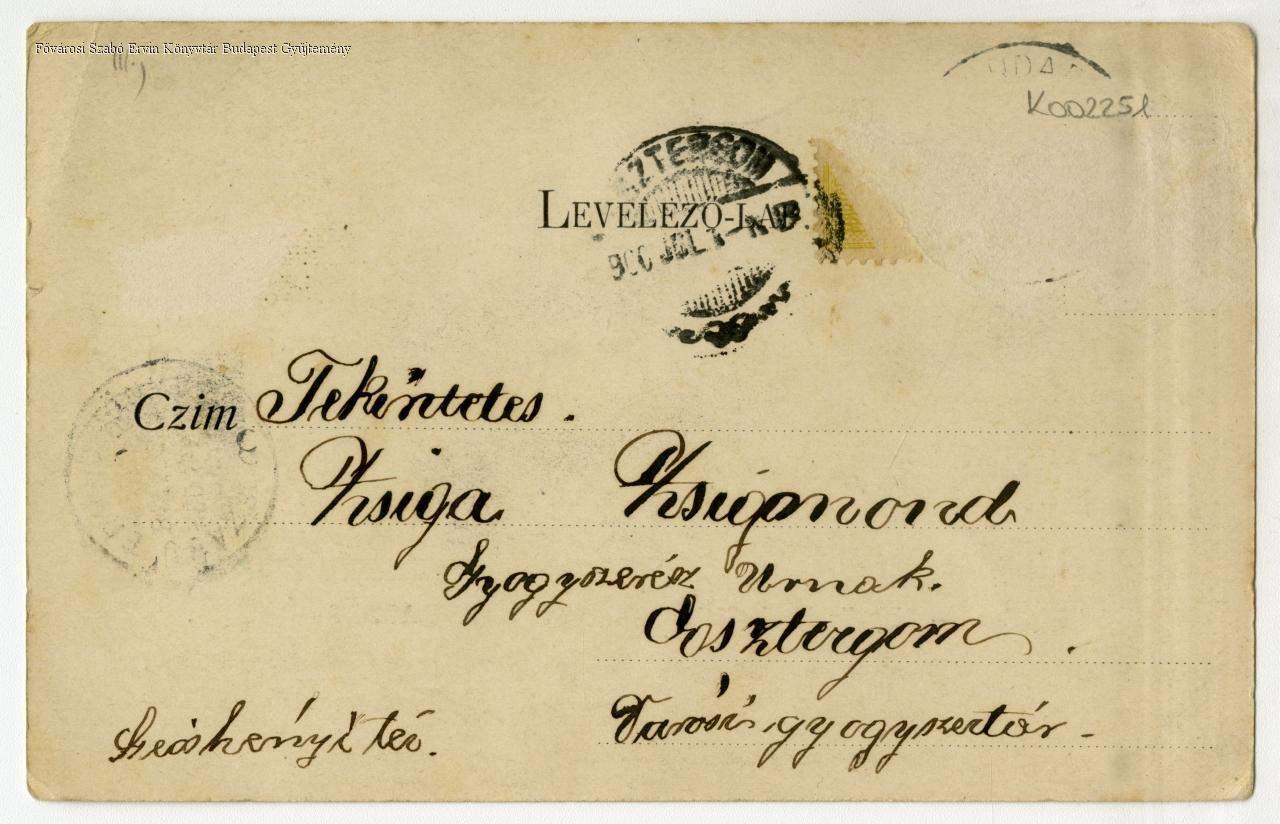 Fővárosi Szabó Ervin Könyvtár Budapest Gyűjtemény
K002251
LEVELEZŐ-LAP
Czim Tekintetes.
Zsiga Zsigmond
Gyogyszerész Urnak.
Esztergom.
Városi gyogyszertár -
Széchényi tér.